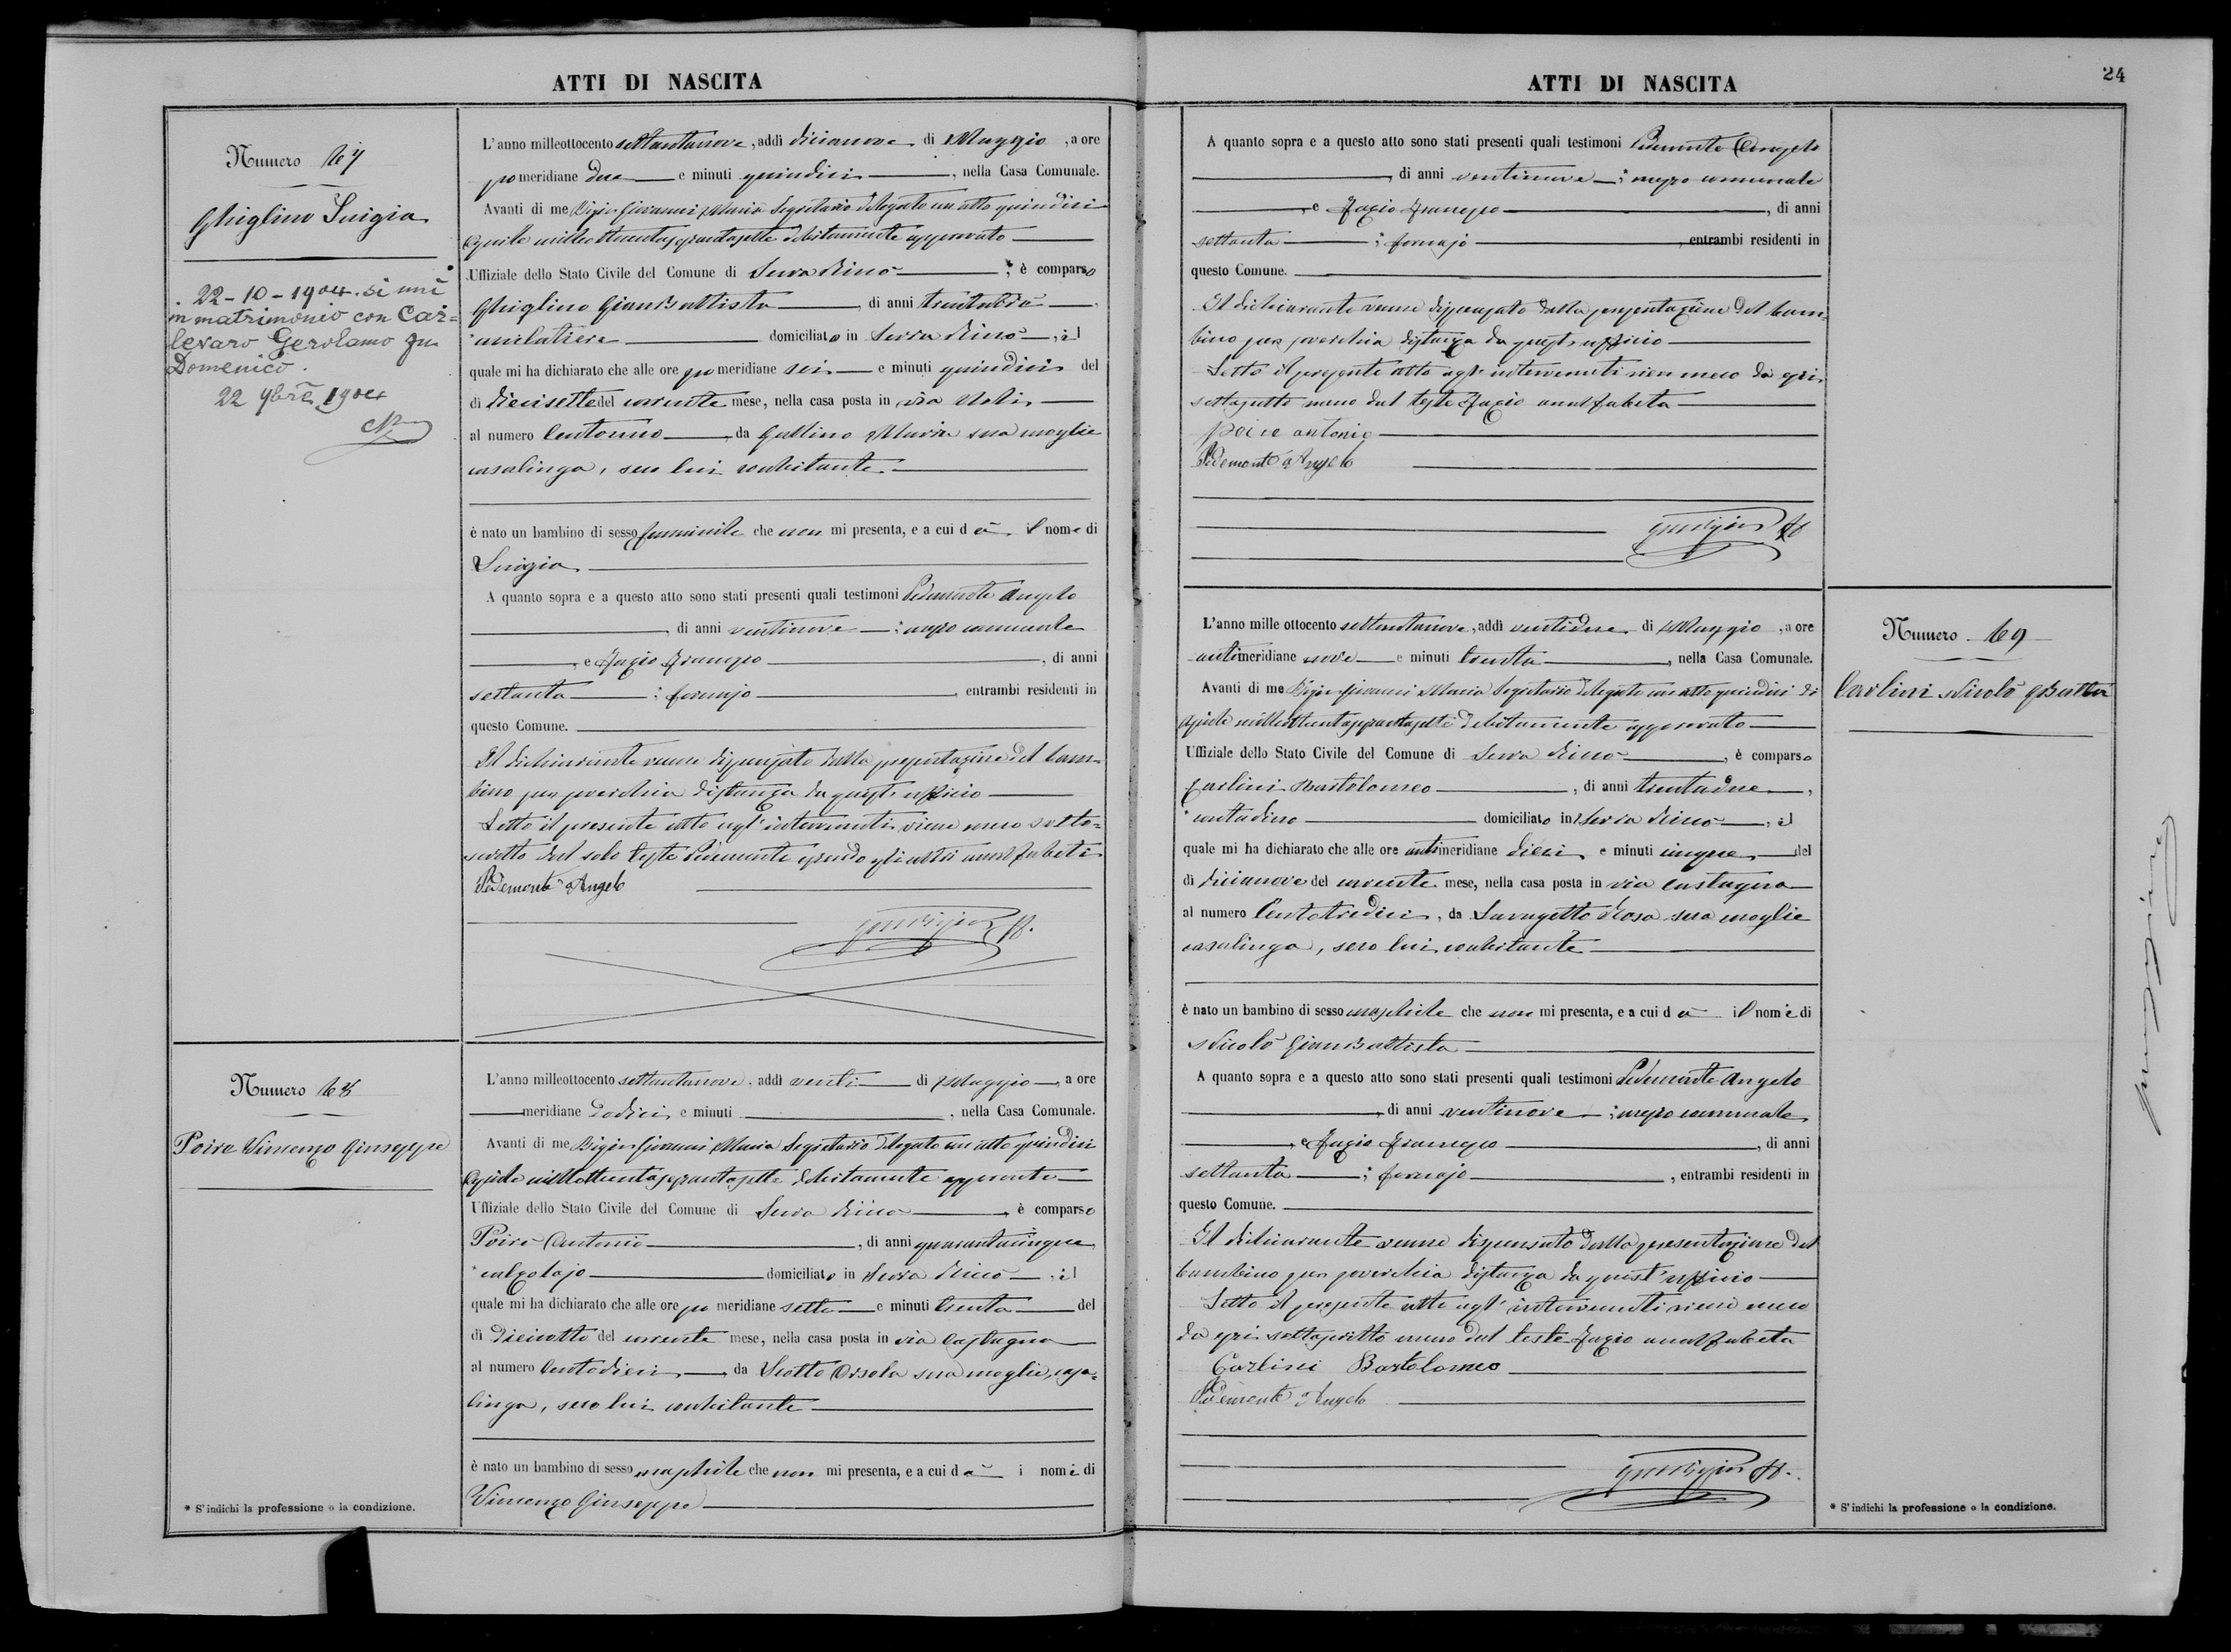 ATTI DI NASCITA
Numero 67
Ghiglino Luigia
22-10-1904. si unì
in matrimonio con Car=
levaro Gerolamo fu
Domenico.
22 9bre 1904
L'anno milleottocento settantanove, addì diecianove di Maggio, a ore
pomeridiane due e minuti quindici, nella Casa Comunale.
Avanti di me Giovanni Maria Segretario delegato con atto quindici
Aprile milleottocentosessantasette debitamente approvato
Uffiziale dello Stato Civile del Comune di Serra Riccò, è comparso
Ghiglino GianBattista, di anni
* mulattiere domiciliato in Serra Riccò, il
quale mi ha dichiarato che alle ore pomeridiane sei e minuti quindici del
dì diecisette del corrente mese, nella casa posta in via
al numero Centouno, da Gallino Maria sua moglie
casalinga, seco lui coabitante.
è nato un bambino di sesso femminile che non mi presenta, e a cui dà il nome di
Luigia
A quanto sopra e a questo atto sono stati presenti quali testimoni Pedemonte Angelo
di anni ventinove; messo comunale
e Fazio Francesco, di anni
settanta; fornajo, entrambi residenti in
questo Comune.
Il dichiarante venne dispensato dalla presentazione del bam=
bino per soverchia distanza da quest'ufficio
Letto il presente atto agl'intervenuti viene meco sotto=
scritto dal solo teste Pedemonte essendo gli altri analfabeti
Pedemonte Angelo
Numero 68
Poire Vincenzo Giuseppe
L'anno milleottocento settantanove, addì venti di Maggio, a ore
meridiane dodici e minuti, nella Casa Comunale.
Avanti di me Giovanni Maria Segretario delegato con atto quindici
Aprile milleottocentosessantasette debitamente approvato
Uffiziale dello Stato Civile del Comune di Serra Riccò, è comparso
Poirè Antonio, di anni quarantacinque,
* calzolajo domiciliato in Serra Riccò, il
quale mi ha dichiarato che alle ore pomeridiane sette e minuti trenta del
dì dieciotto del corrente mese, nella casa posta in via Castagna
al numero Centodieci, da Scotto Orsola sua moglie, casa=
linga, seco lui coabitante
è nato un bambino di sesso maschile che non mi presenta, e a cui dà i nomi di
Vincenzo Giuseppe
* S'indichi la professione o la condizione.
ATTI DI NASCITA
24
A quanto sopra e a questo atto sono stati presenti quali testimoni Pedemonte Angelo
, di anni ventinove; messo comunale
, e Fazio Francesco, di anni
settanta; fornajo, entrambi residenti in
questo Comune.
Il dichiarante venne dispensato dalla presentazione del bam=
bino per soverchia distanza da quest'ufficio
Letto il presente atto agl'intervenuti vien meco da essi
sottoscritto meno dal teste Fazio analfabeta
Poire antonio
Pedemonte Angelo
Numero 69
Carlini Nicolò GBatta
L'anno mille ottocento settantanove, addì ventidue di Maggio, a ore
antimeridiane nove e minuti trenta, nella Casa Comunale.
Avanti di me Giovanni Maria Segretario delegato con atto quindici di
Aprile milleottocentosessantasette debitamente approvato
Uffiziale dello Stato Civile del Comune di Serra Riccò, è comparso
Carlini Bartolomeo, di anni trentadue,
* contadino domiciliato in Serra Riccò, il
quale mi ha dichiarato che alle ore antimeridiane dieci e minuti cinque del
dì diecianove del corrente mese, nella casa posta in via Castagna
al numero Centotredici, da Rosa sua moglie
casalinga, seco lui coabitante
è nato un bambino di sesso maschile che non mi presenta, e a cui dà il nome di
Nicolò GianBattista
A quanto sopra e a questo atto sono stati presenti quali testimoni Pedemonte Angelo
, di anni ventinove; messo comunale
, e Fazio Francesco, di anni
settanta; fornajo, entrambi residenti in
questo Comune.
Il dichiarante venne dispensato dalla presentazione del
bambino per soverchia distanza da quest'ufficio
Letto il presente atto agl'intervenuti viene meco
da essi sottoscritto meno dal teste Fazio analfabeta
Carlini Bartolomeo
Pedemonte Angelo
* S'indichi la professione o la condizione.